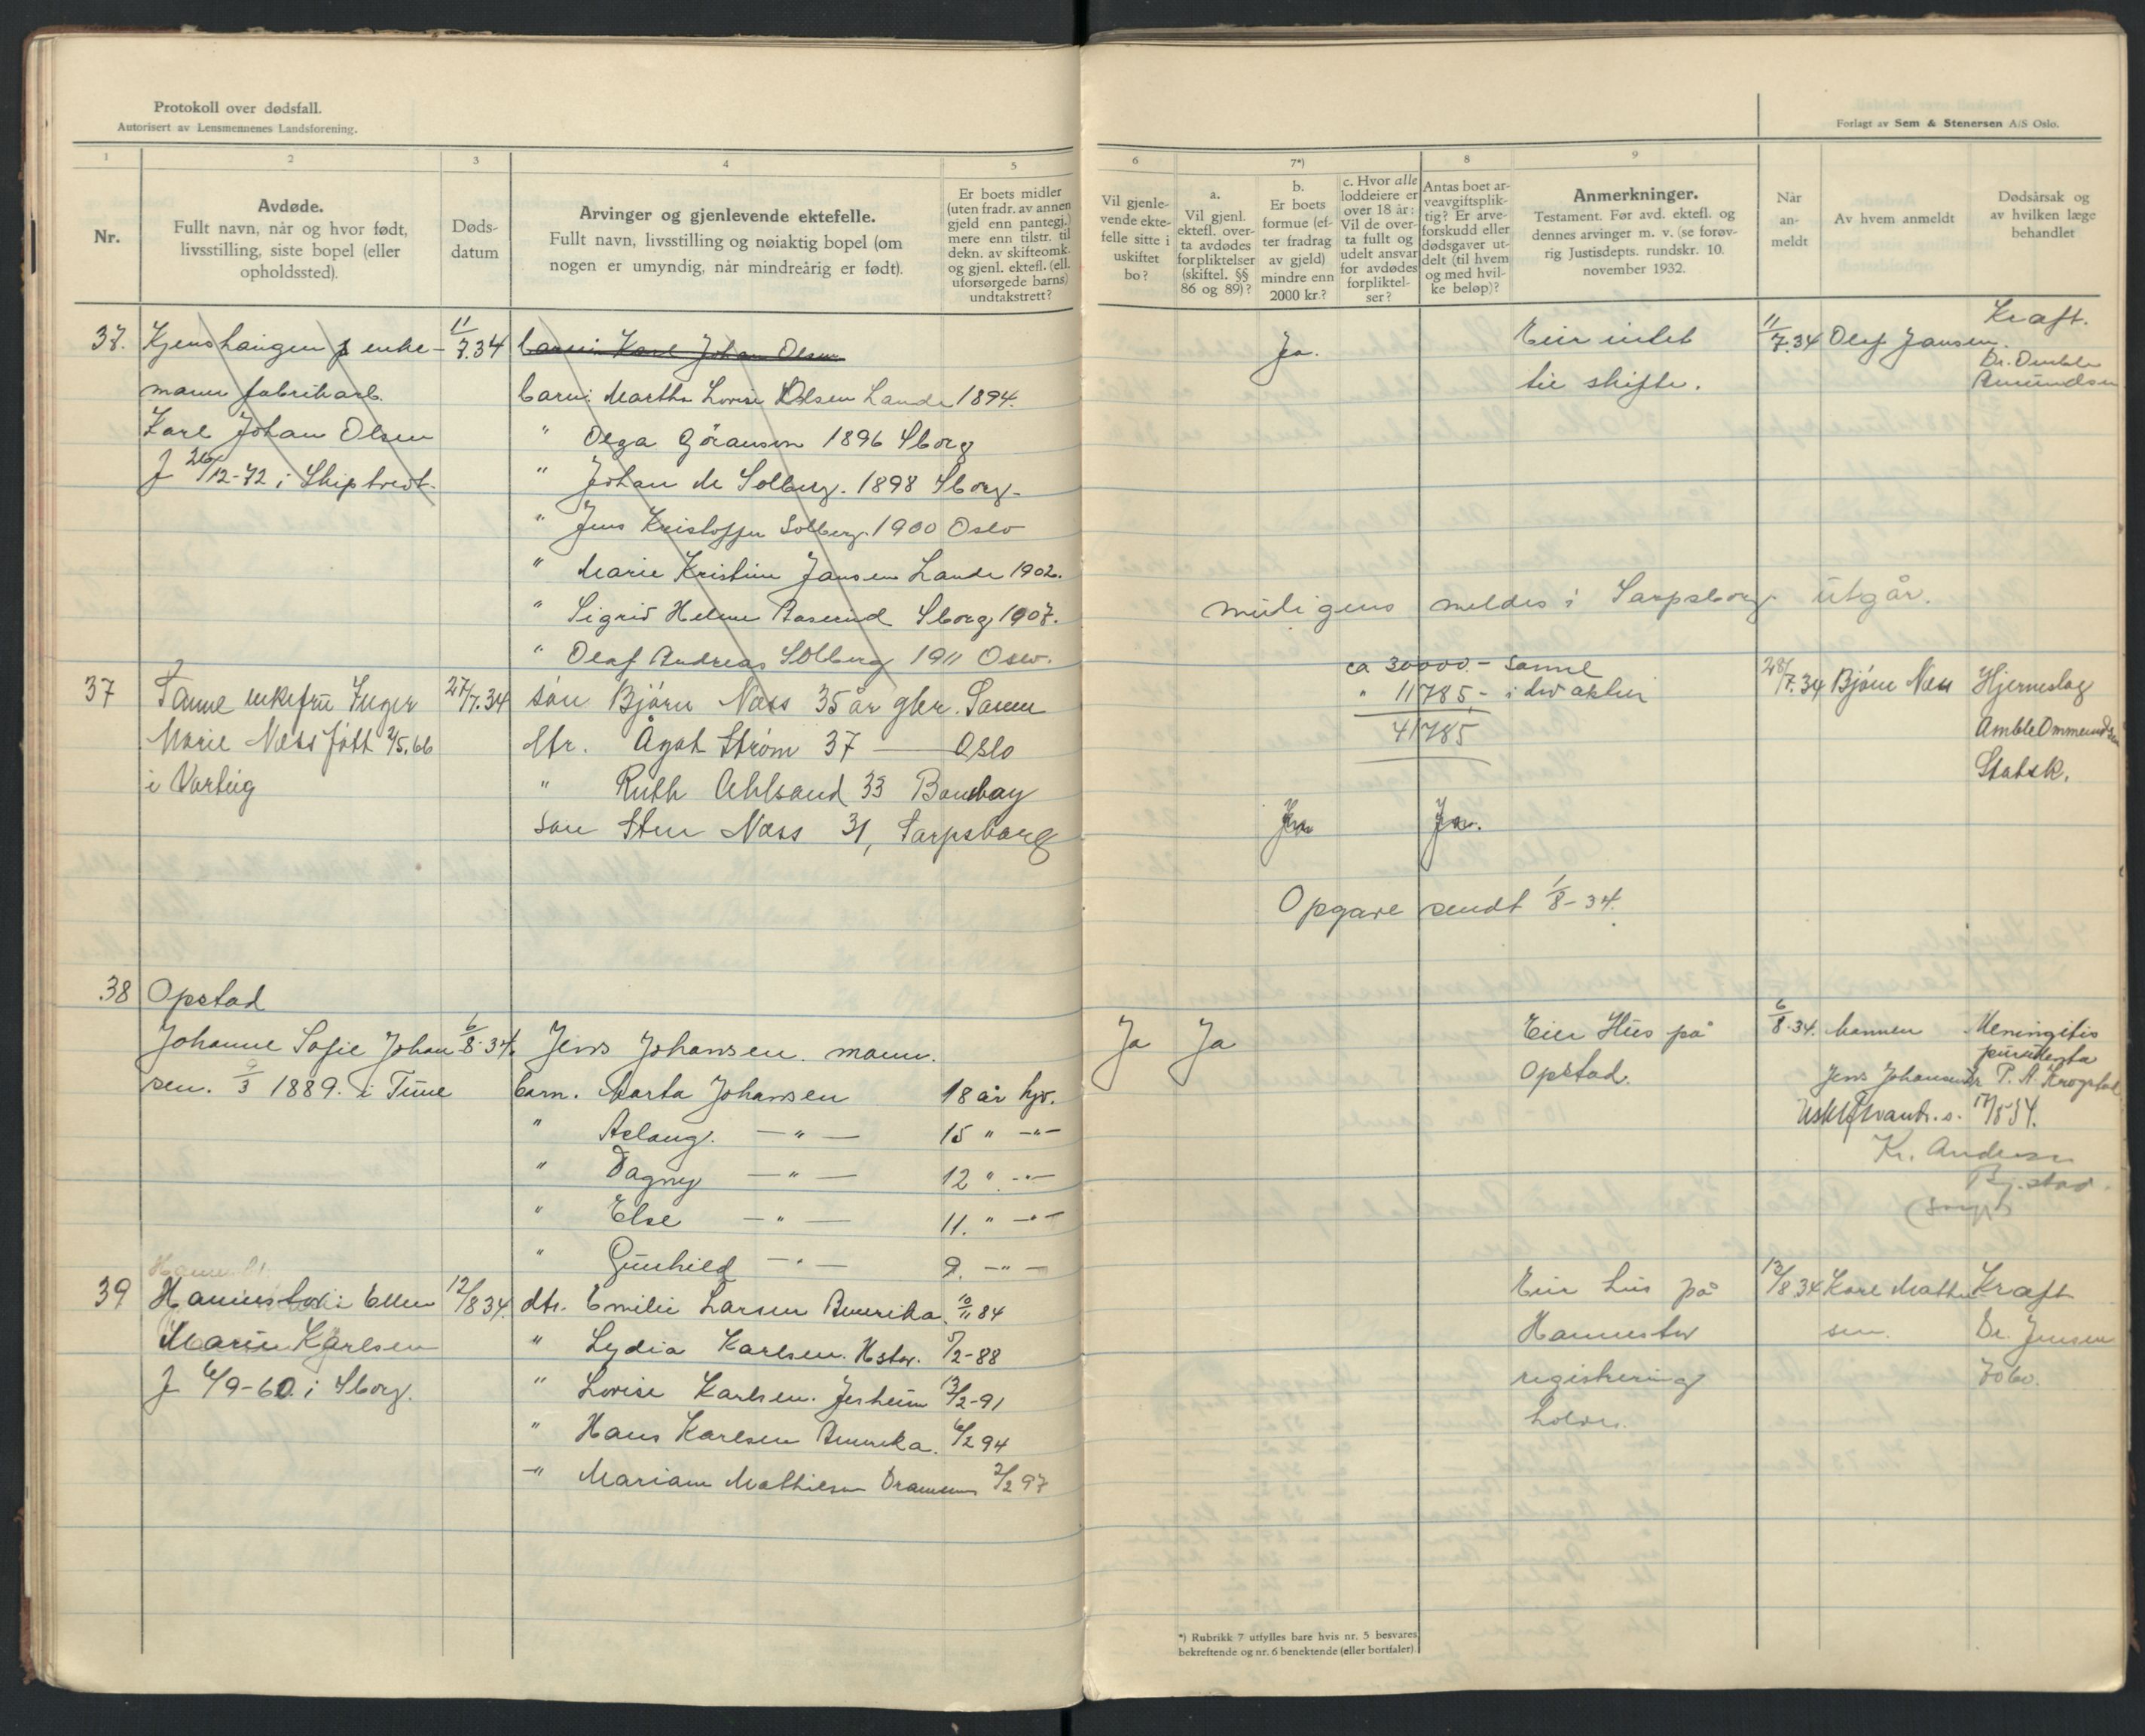 Protokoll over dødsfall.
Autorisert av Lensmennenes Landsforening.
Forlagt av Sem & Stenersen A/S Oslo.
1
2
3
4
5
6
7*)
8
9
Nr.
Avdøde.
Fullt navn, når og hvor født,
livsstilling, siste bopel (eller
opholdssted).
Døds-
datum
Arvinger og gjenlevende ektefelle.
Fullt navn, livsstilling og nøiaktig bopel (om
nogen er umyndig, når mindreårig er født).
Er boets midler
(uten fradr. av annen
gjeld enn pantegj.)
mere enn tilstr. til
dekn. av skifteomk.
og gjenl. ektefl. (ell.
uforsørgede barns)
undtakstrett?
Vil gjenle-
vende ekte-
felle sitte i
uskiftet
bo?
a.
Vil gjenl.
ektefl. over-
ta avdødes
forpliktelser
(skiftel. §§
86 og 89)?
b.
Er boets
formue (ef-
ter fradrag
av gjeld)
mindre enn
2000 kr.?
c. Hvor alle
loddeiere er
over 18 år:
Vil de over-
ta fullt og
udelt ansvar
for avdødes
forpliktel-
ser?
Antas boet ar-
veavgiftsplik-
tig? Er arve-
forskudd eller
dødsgaver ut-
delt (til hvem
og med hvil-
ke beløp)?
Anmerkninger.
Testament. Før avd. ektefl. og
dennes arvinger m. v. (se forøv-
rig Justisdepts. rundskr. 10.
november 1932.
Når
an-
meldt
Av hvem anmeldt
Dødsårsak og
av hvilken læge
behandlet
37. Kjenshaugen enke- 11/7.34 barn: Karl Johan Olsen
Ja. Eier intet 11/7.34 Olaf Jansen. Kraft.
mann fabrikarb. barn: Martha Lovise Olsen Lande 1894.
til skifte. Dr. Amundsen
Karl Johan Olsen " Olga Göranson 1896 Sborg
f 26/12-72 i Skiptvedt. " Johan M Solberg. 1898 Sborg-
" Jens Kristoffer Solberg. 1900 Oslo
" Marie Kristine Jansen Lande 1902.
" Sigrid Helene Aaserud Sborg 1907.
muligens meldes i Sarpsborg utgår.
" Olaf Andreas Solberg 1911 Oslo.
ca 30000.- Sanne
37 Sanne enkefru Inger 27/7.34 søn Bjørn Næss 35 år gbr. Sanne
" 11785,- i div aktier 28/7.34 Bjørn Næss Hjerneslag
Marie Næss født 2/5.66 dtr. Ågot Strøm 37 — Oslo
41785
Amble Ommundsen
i Varteig " Ruth Ahlsand 33 Bombay
Statsk.
søn Sten Næss 31, Sarpsborg
Ja Ja.
Opgave sendt 1/8-34.
38 Opstad
Johanne Sofie Johan 6/8-34. Jens Johansen. mann.
Ja Ja Eier Hus på 6/8-34. Mannen Meningitis
sen. 9/3 1889. i Tune barn. Marta Johansen 18 år hjv.
Opstad. Jens Johansen Dr P. A. Krogstad
" Aslaug. — " — 15 " — " —
17/8 34.
" Dagny — " — 12 " — " —
Kr. Andersen
" Else — " — 11. " — " —
" Gunhild — " — 9. — " —
39 Hannestad Ellen 12/8 34. dtr. Emilie Larsen Amerika. 10/11 84
Eier hus på 13/8 34 Karl Mathi Kraft
Marie Karlsen " Lydia Karlsen. Hstav. 5/2-88
Hannestad sen. Dr. Jensen
f 6/9-60 i Sborg. " Lovise Karlsen. Jesheim 13/2-91
registrering
" Hans Karlsen Amerika. 6/2 94
holdes.
" Mariam Mathisen Drammen 2/2 97
*) Rubrikk 7 utfylles bare hvis nr. 5 besvares
bekreftende og nr. 6 benektende (eller bortfaler).